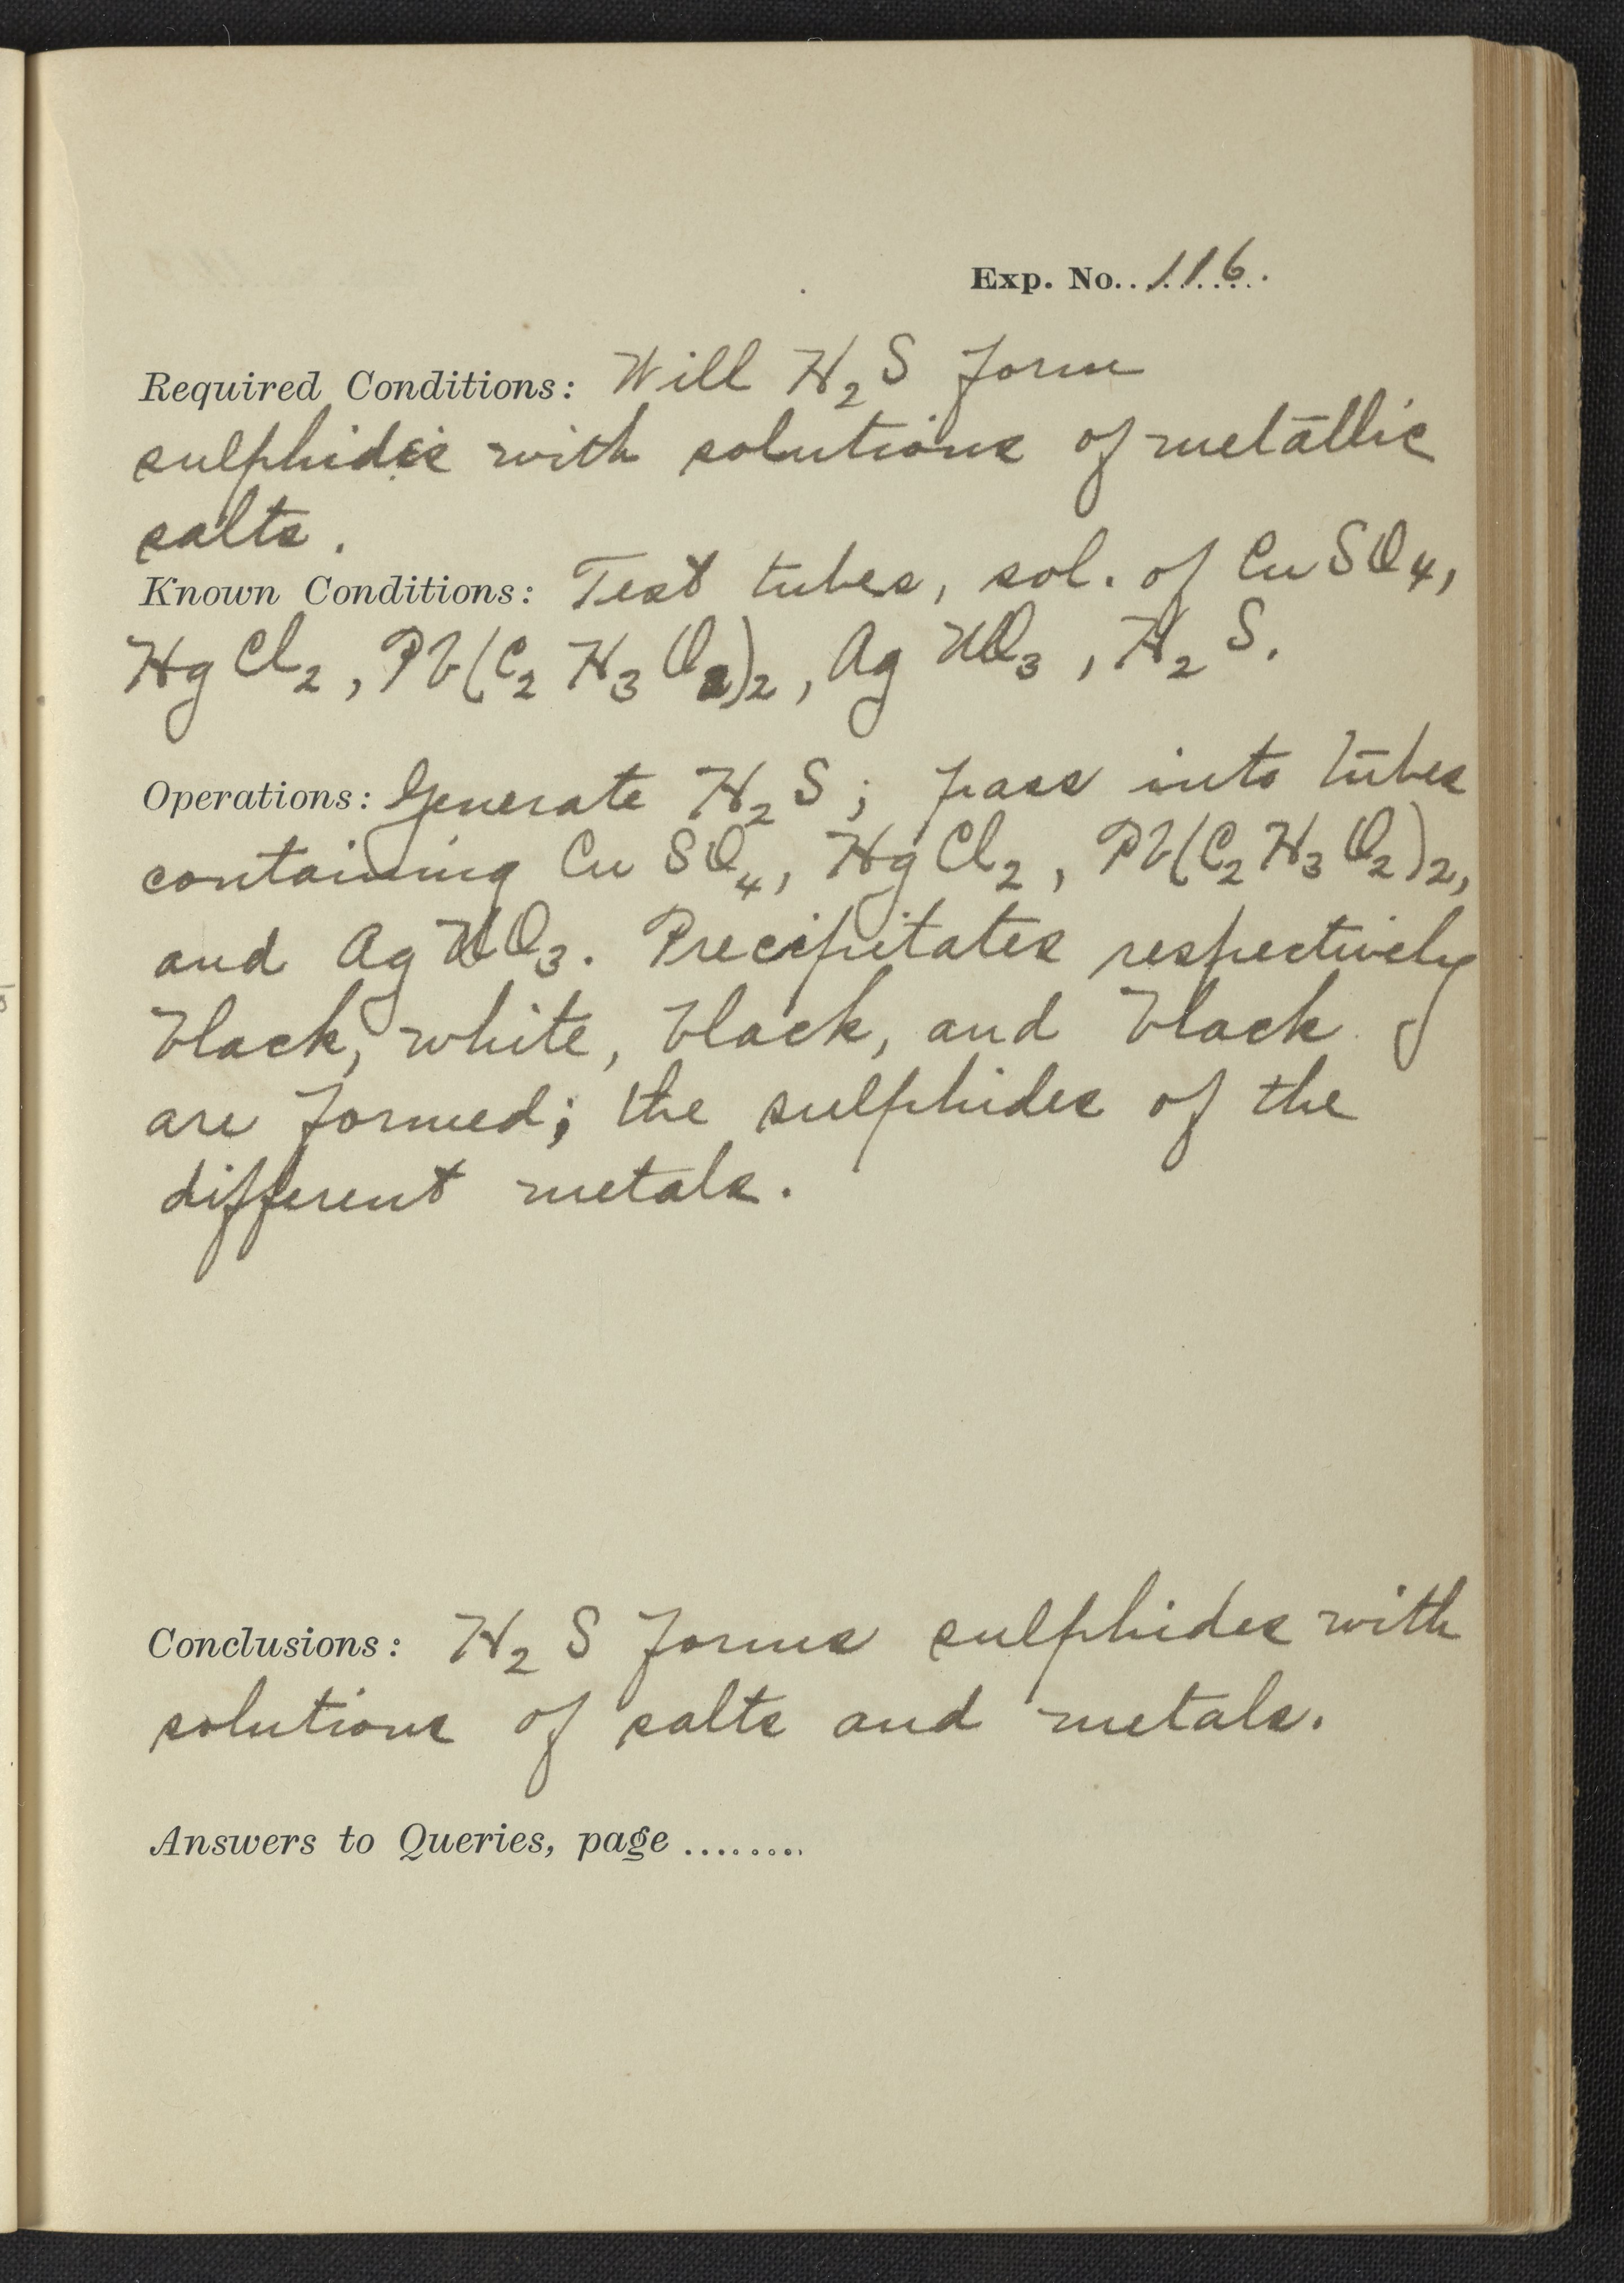 Exp. No. 116.
Required Conditions: Will H2S form
sulphides with solutions of metallic
salts.
Known Conditions: Test tubes, sol. of CuSO4,
HgCl2, Pb(C2H3O2)2, AgNO3, H2S.
Operations: Generate H2S; pass into tubes
containing CuSO4, HgCl2, Pb(C2H3O2)2,
and AgNO3. Precipitates respectively
black, white, black, and black
are formed; the sulphides of the
different metals.
Conclusions: H2S forms sulphides with
solutions of salts and metals.
Answers to Queries, page ........